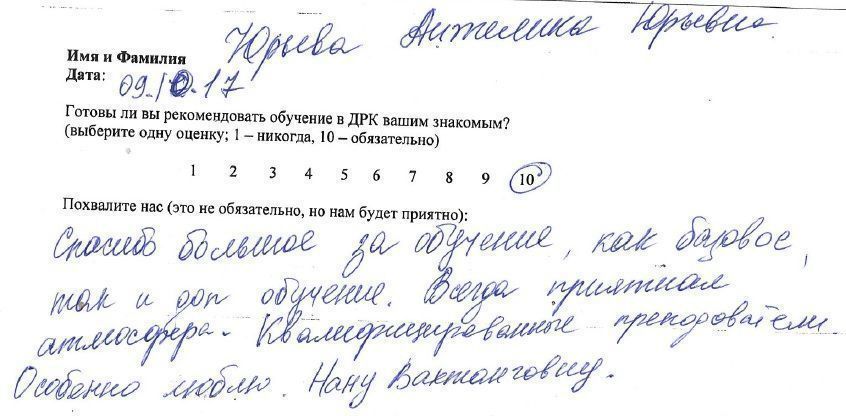 Юрьева Анжелика Юрьевна.
Имя и Фамилия
Дата: 09.10.17
Готовы ли вы рекомендовать обучение в ДРК вашим знакомым?
(выберите одну оценку; 1 – никогда, 10 – обязательно)
1 2 3 4 5 6 7 8 9 10
Похвалите нас (это не обязательно, но нам будет приятно):
Спасибо большое за обучение, как базовое,
так и доп обучение. Всегда приятная
атмосфера. Квалифицированные преподователи.
Особенно люблю Нану Вахтанговну.